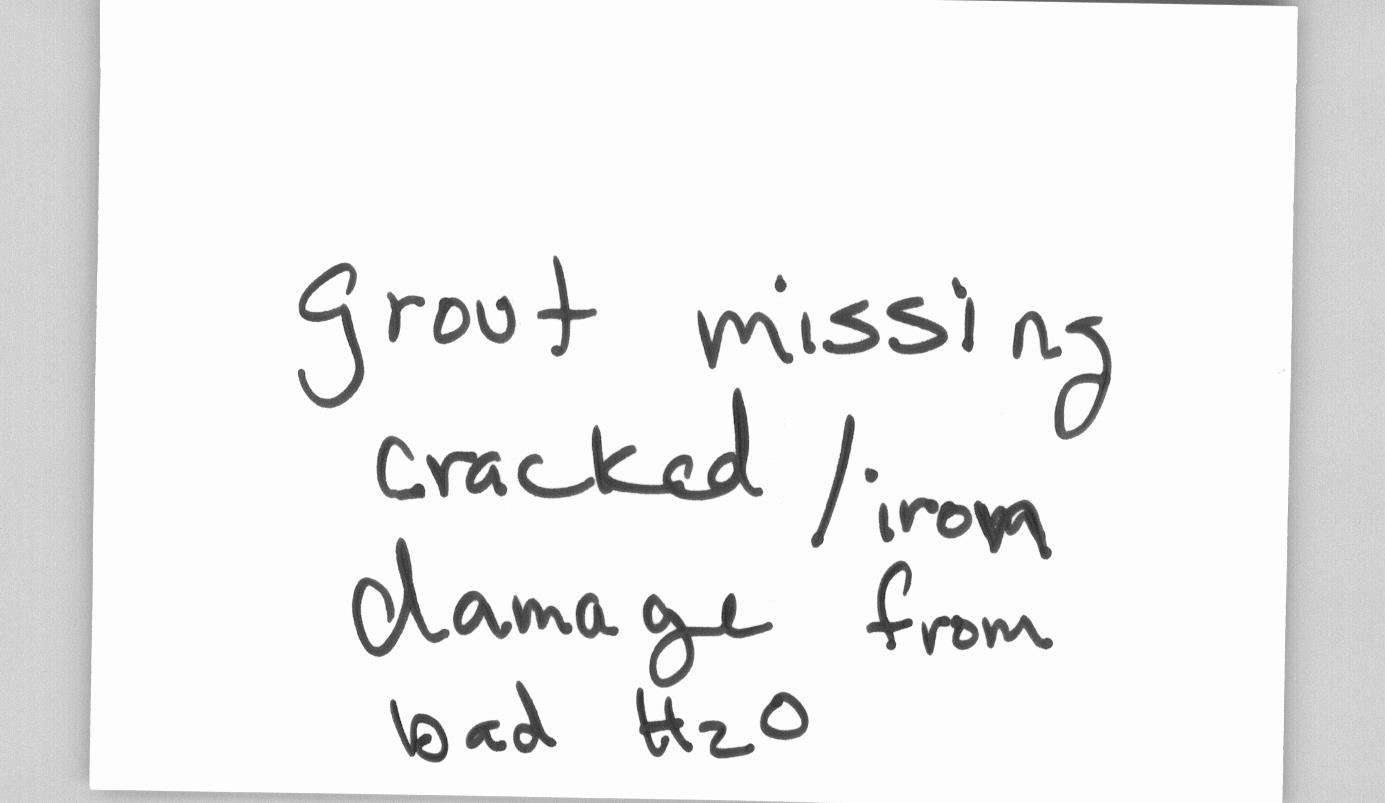 grout missing
cracked / iron
damage from
bad H2O